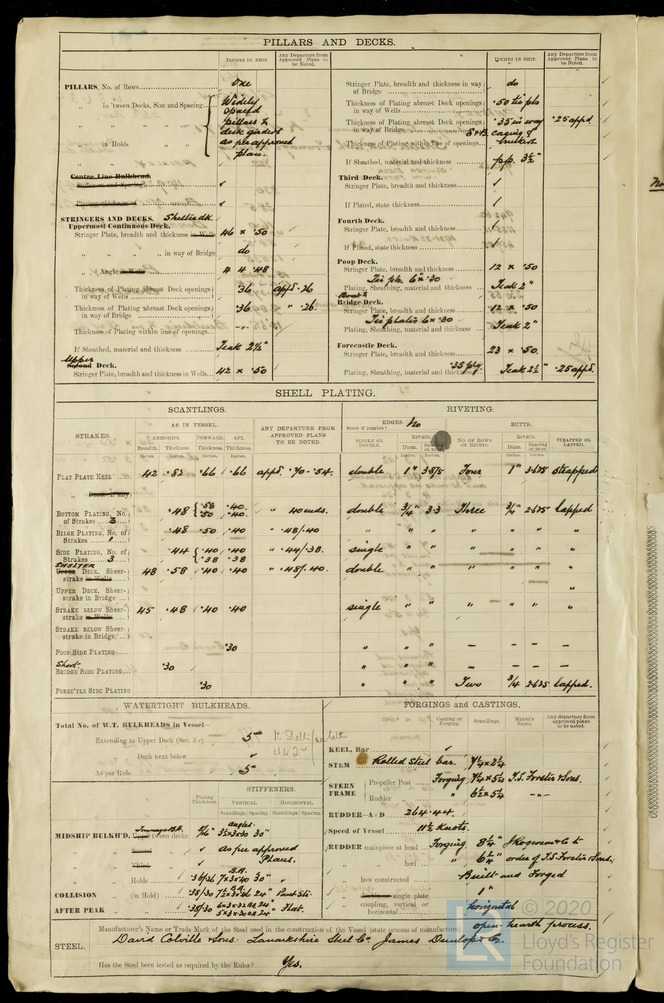 PILLARS AND DECKS.
INCHES IN SHIP.
Any Departure from Approved Plans to be Noted.
INCHES IN SHIP.
Any Departure from Approved Plans to be Noted.
PILLARS, No. of Rows one
„ in 'tween Decks, Size and Spacing Widely spaced pillars & deck girders as per approved plan.
„ in Holds
Centre Line Bulkhead.
Stiffeners and Spacing
Plating thickness
STRINGERS AND DECKS. Shelter dk.
Uppermost Continuous Deck.
Stringer Plate, breadth and thickness in Wells 46 × .50
„ „ „ in way of Bridge do
„ Angle in Wells 4 4 .48
Thickness of Plating abreast Deck openings in way of Wells .36 appd .26
Thickness of Plating abreast Deck openings in way of Bridge .36 „ .26.
Thickness of Plating within line of openings
If Sheathed, material and thickness Teak 2½"
Upper Second Deck.
Stringer Plate, breadth and thickness in Wells 42 × .50
Stringer Plate, breadth and thickness in way of Bridge do
Thickness of Plating abreast Deck openings in way of Wells .50 tie pls
Thickness of Plating abreast Deck openings in way of Bridge .35 in way .25 appd.
Thickness of Plating within line of openings
If Sheathed, material and thickness p.p. 3½"
Third Deck.
Stringer Plate, breadth and thickness
If Plated, state thickness
Fourth Deck.
Stringer Plate, breadth and thickness
If Plated, state thickness
Poop Deck.
Stringer Plate, breadth and thickness 12 × .50
Tie pls. 6 × .30
Plating, Sheathing, material and thickness Teak 2"
Bridge Deck.
Stringer Plate, breadth and thickness 12 × .50
Tie plates 6 × .30
Plating, Sheathing, material and thickness Teak 2"
Forecastle Deck.
Stringer Plate, breadth and thickness 23 × .50.
Plating, Sheathing, material and thickness .35 plg. Teak 2½" .25 appd.
SHELL PLATING.
SCANTLINGS.
RIVETING.
STRAKES.
AS IN VESSEL.
AMIDSHIPS. FORWARD. AFT.
Breadth. Thickness. Thickness. Thickness.
ANY DEPARTURE FROM APPROVED PLANS TO BE NOTED.
EDGES. No
State if joggled?
SINGLE OR DOUBLE.
RIVETS.
Diam.
BUTTS.
NO. OF ROWS OF RIVETS.
RIVETS.
Diam. Spacing
STRAPPED OR LAPPED.
FLAT PLATE KEEL 42 .82 .66 .66 appd .70 - .54. double 1" 3.875 Four 1" 3.675 Strapped
BOTTOM PLATING, No. of Strakes 3 .48 .58 .50 .40. .40 „ .40 ends. double ¾" 3.3 Three ¾" 2.625 Lapped
BILGE PLATING, No. of Strakes 1 .48 .50 .40 „ .48/.40 „ „ „ „ „ „ „
SIDE PLATING, No. of Strakes 3 .44 .40 .38 .40 .38 „ .44/.38. single „ „ „ „ „ „
SHELTER Upper DECK, Sheerstrake in Wells 48 .58 .40 .40 „ .48/.40. double „ „ „ „ „ „
UPPER DECK, Sheerstrake in Bridge
STRAKE BELOW Sheerstrake in Wells 45 .48 .40 .40 single „ „ „ „ „ „
STRAKE BELOW Sheerstrake in Bridge
POOP SIDE PLATING .30 „ „ „ - - - „
Short BRIDGE SIDE PLATING .30 „ „ „ - - - „
FOREC'TLE SIDE PLATING .30 „ „ „ Two ¾ 2.625 Lapped.
WATERTIGHT BULKHEADS.
Total No. of W.T. BULKHEADS in Vessel—
Extending to Upper Deck 5
„ Deck next below „
As per Rule 5
Plating Thickness.
STIFFENERS.
VERTICAL. HORIZONTAL.
Scantlings. Spacing. Scantlings. Spacing.
MIDSHIP BULKH'D, Upper 'tween decks 30"
„ as per approved Plans.
„ Holds 7×3×.40 30"
COLLISION (in Hold) 24"
AFTER PEAK „ 24" Flat.
FORGINGS AND CASTINGS.
Casting or Forging.
Scantlings.
Maker's Name.
Any departure from approved plans to be noted.
KEEL, Bar
STEM Rolled Steel bar.
STERN FRAME
Propeller Post Forging T.S. Forster & Sons.
Rudder „ „
RUDDER—A×D 264.44.
Speed of Vessel 11½ Knots.
RUDDER mainpiece at head Forging
„ „ heel „ 6¼" order of T.S. Forster & Sons.
„ how constructed Built and Forged
„ double or single plate 1"
„ coupling, vertical or horizontal horizontal
STEEL.
Manufacturer's Name or Trade Mark of the Steel used in the construction of the Vessel (state process of manufacture) open hearth process.
David Colville & Sons. Lanarkshire Steel Co. James Dunlop & Co.
Has the Steel been tested as required by the Rules? Yes.
LR
© 2020
Lloyd's Register
Foundation